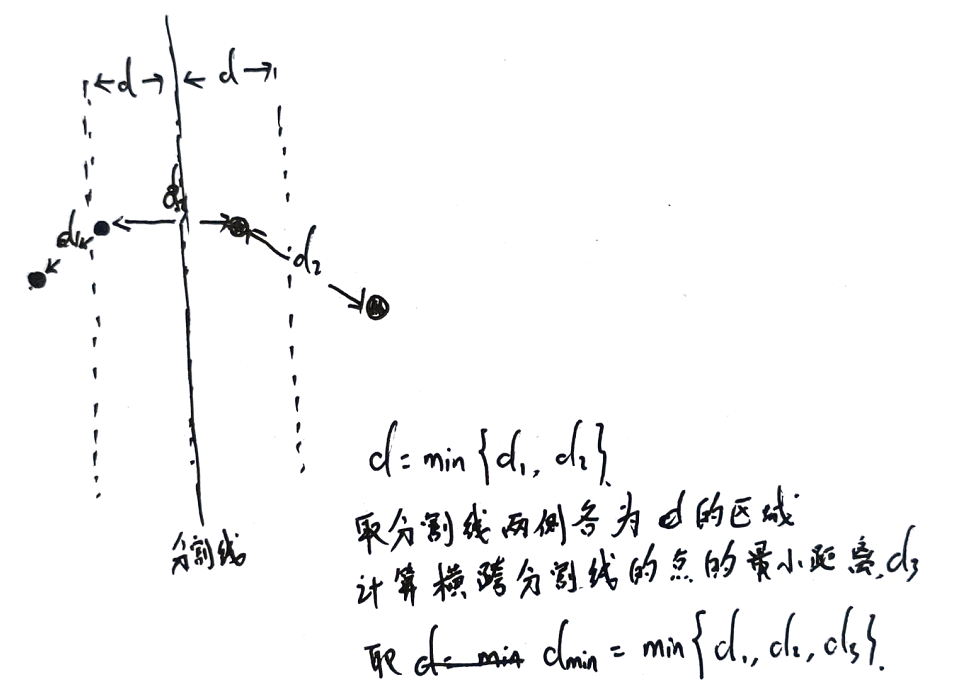 d d
d₃
d₁
d₂
分割线
d = min {d₁, d₂}.
取分割线两侧各为d的区域
计算横跨分割线的点的最小距离, d₃
取 d = min dmin = min {d₁, d₂, d₃}.